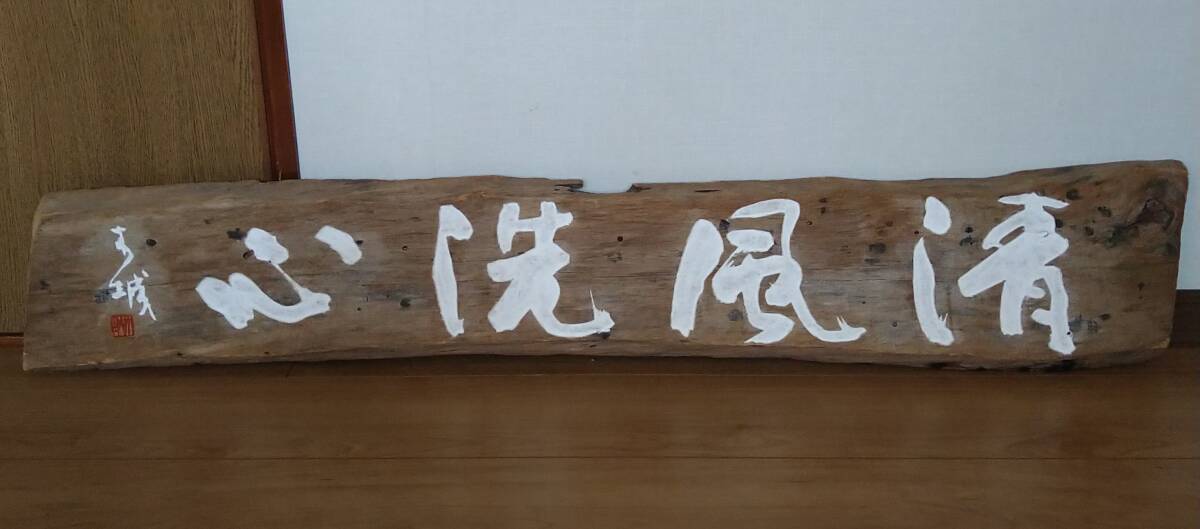 清風洗心